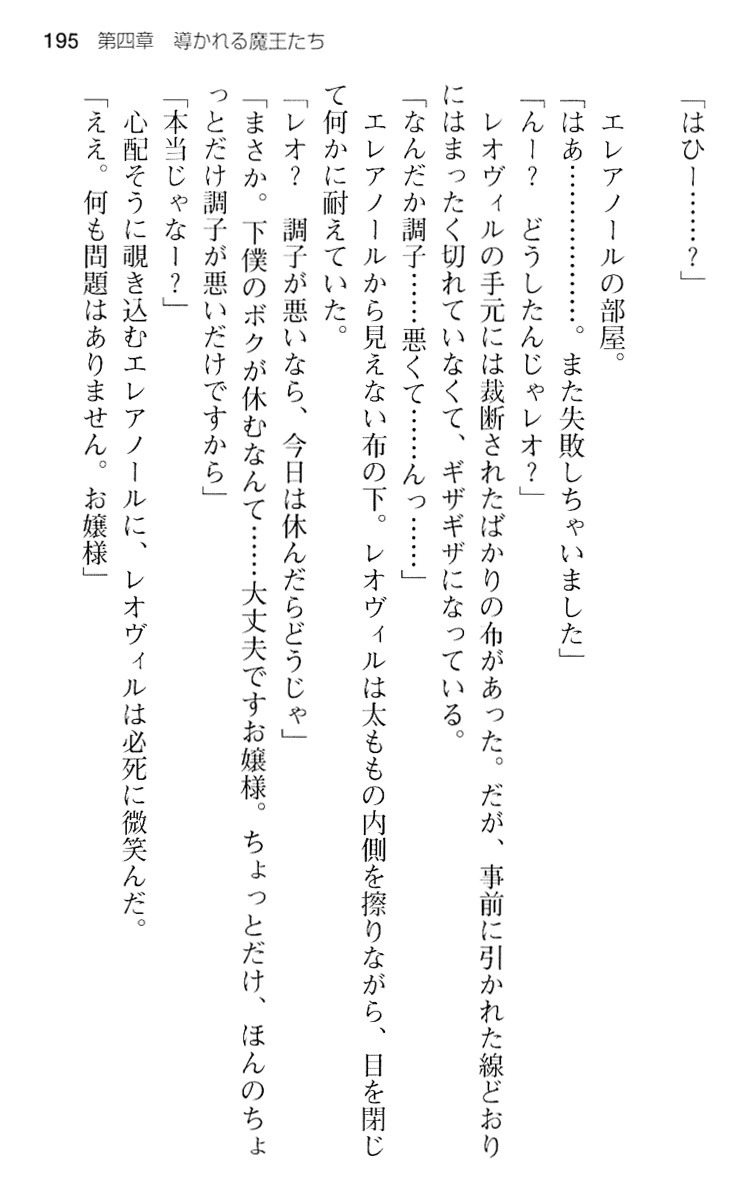 195　第四章　導かれる魔王たち
「はひー……？」
　エレアノールの部屋。
「はぁ………………。また失敗しちゃいました」
「んー？　どうしたんじゃレオ？」
　レオヴィルの手元には裁断されたばかりの布があった。だが、事前に引かれた線どおり
にはまったく切れていなくて、ギザギザになっている。
「なんだか調子……悪くて……んっ……」
　エレアノールから見えない布の下。レオヴィルは太ももの内側を擦りながら、目を閉じ
て何かに耐えていた。
「レオ？　調子が悪いなら、今日は休んだらどうじゃ」
「まさか。下僕のボクが休むなんて……大丈夫ですお嬢様。ちょっとだけ、ほんのちょ
っとだけ調子が悪いだけですから」
「本当じゃなー？」
　心配そうに覗き込むエレアノールに、レオヴィルは必死に微笑んだ。
「ええ。何も問題はありません。お嬢様」